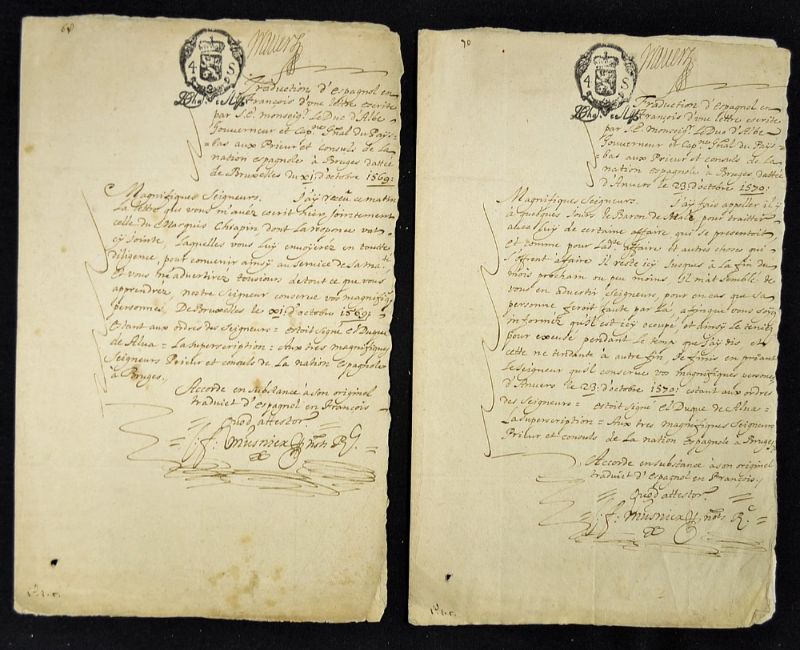 68
4 S
Traduction d'espagnol en
François d'une lettre escrite
par S.E. monseigr. Le Duc d'Albe
Gouverneur et Capne. Gnal du Pays-
=bas aux Prieur et consuls de La
nation espagnole à Bruges dattée
de Bruxelles du xi d'octobre 1569:
Magnifiques Seigneurs. J'ay receu ce matin
La lettre que vous m'avez escrit hier jointement
celle du Marquis Chiapin, dont La reponce vat
cy Jointe, Laquelles vous Luy envoyerez en toutte
diligence, pour convenir ainsy au service de sa maté.
Et vous m'advertirez tousiours de tout ce que vous
apprendrez, nostre Seigneur conserve vos magnifiqs
personnes, De Bruxelles le xi d'octobre 1569:
estant aux ordres des Seigneurs = estoit signé el Duque
de Alua = La superscription = Aux tres magnifiques
Seigneurs Prieur et consuls de La nation Espagnole
à Bruges.
Accorde en substance à son original
traduict d'espagnol en François
Quod attestor
J: F: Musnicx nots R.
70
4 S
Traduction d'espagnol en
François d'une lettre escrite
par S.E. monseigr. Le Duc d'Albe
Gouverneur et Capne. Gnal du Pays-
=bas aux Prieur et consuls de La
nation espagnole à Bruges dattée
d'Anvers le 23 d'octobre 1570:
Magnifiques Seigneurs. J'ay fais appeler il y
à quelques Jours le Baron de pour traitter
avec Luy de certaine affaire qui se presentoit
et comme pour Lade. affaire et autres choses qui
s'offrent affaire Il reste icy Jusques à La fin du
mois prochain ou peu moins Il m'at semblé de
vous en advertir Seigneurs, pour en cas que sa
personne feroit faute par La, afin que vous soiez
informez qu'il est icy occupé et ainsy Le teniez
pour excusé pendant le tems que J'ay dis et
cette ne tendante à autre fin Je finis en priant
Le Seigneur qu'il conserve vos magnifiques personnes
d'Anvers le 23 d'octobre 1570: estant aux ordres
des Seigneurs = estoit signé el Duque de Alua =
La superscription = Aux tres magnifiques Seigneurs
Prieur et consuls de La nation Espagnole à Bruges
Accorde en substance à son original
traduict d'espagnol en François
Quod attestor
J: F: Musnicx nots R.